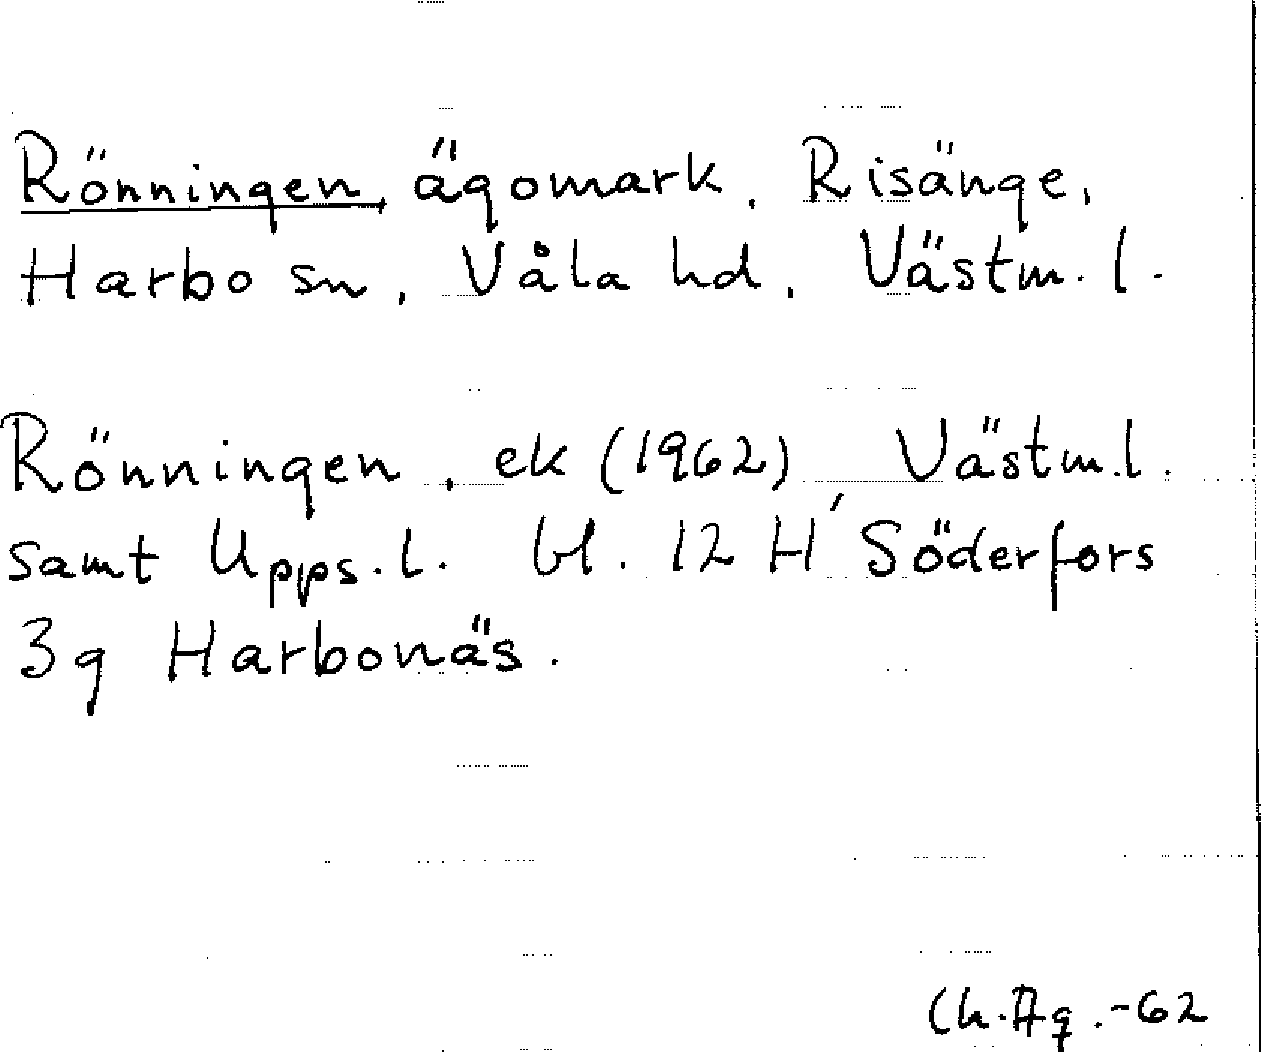 Rönningen, ägomark, Risänge,
Harbo sn, Våla hd, Västm. l.
Rönningen, ek (1962) Västm.l.
samt Upps.l. bl. 12 H Söderfors
3g Harbonäs.
Ch.Ag.-62